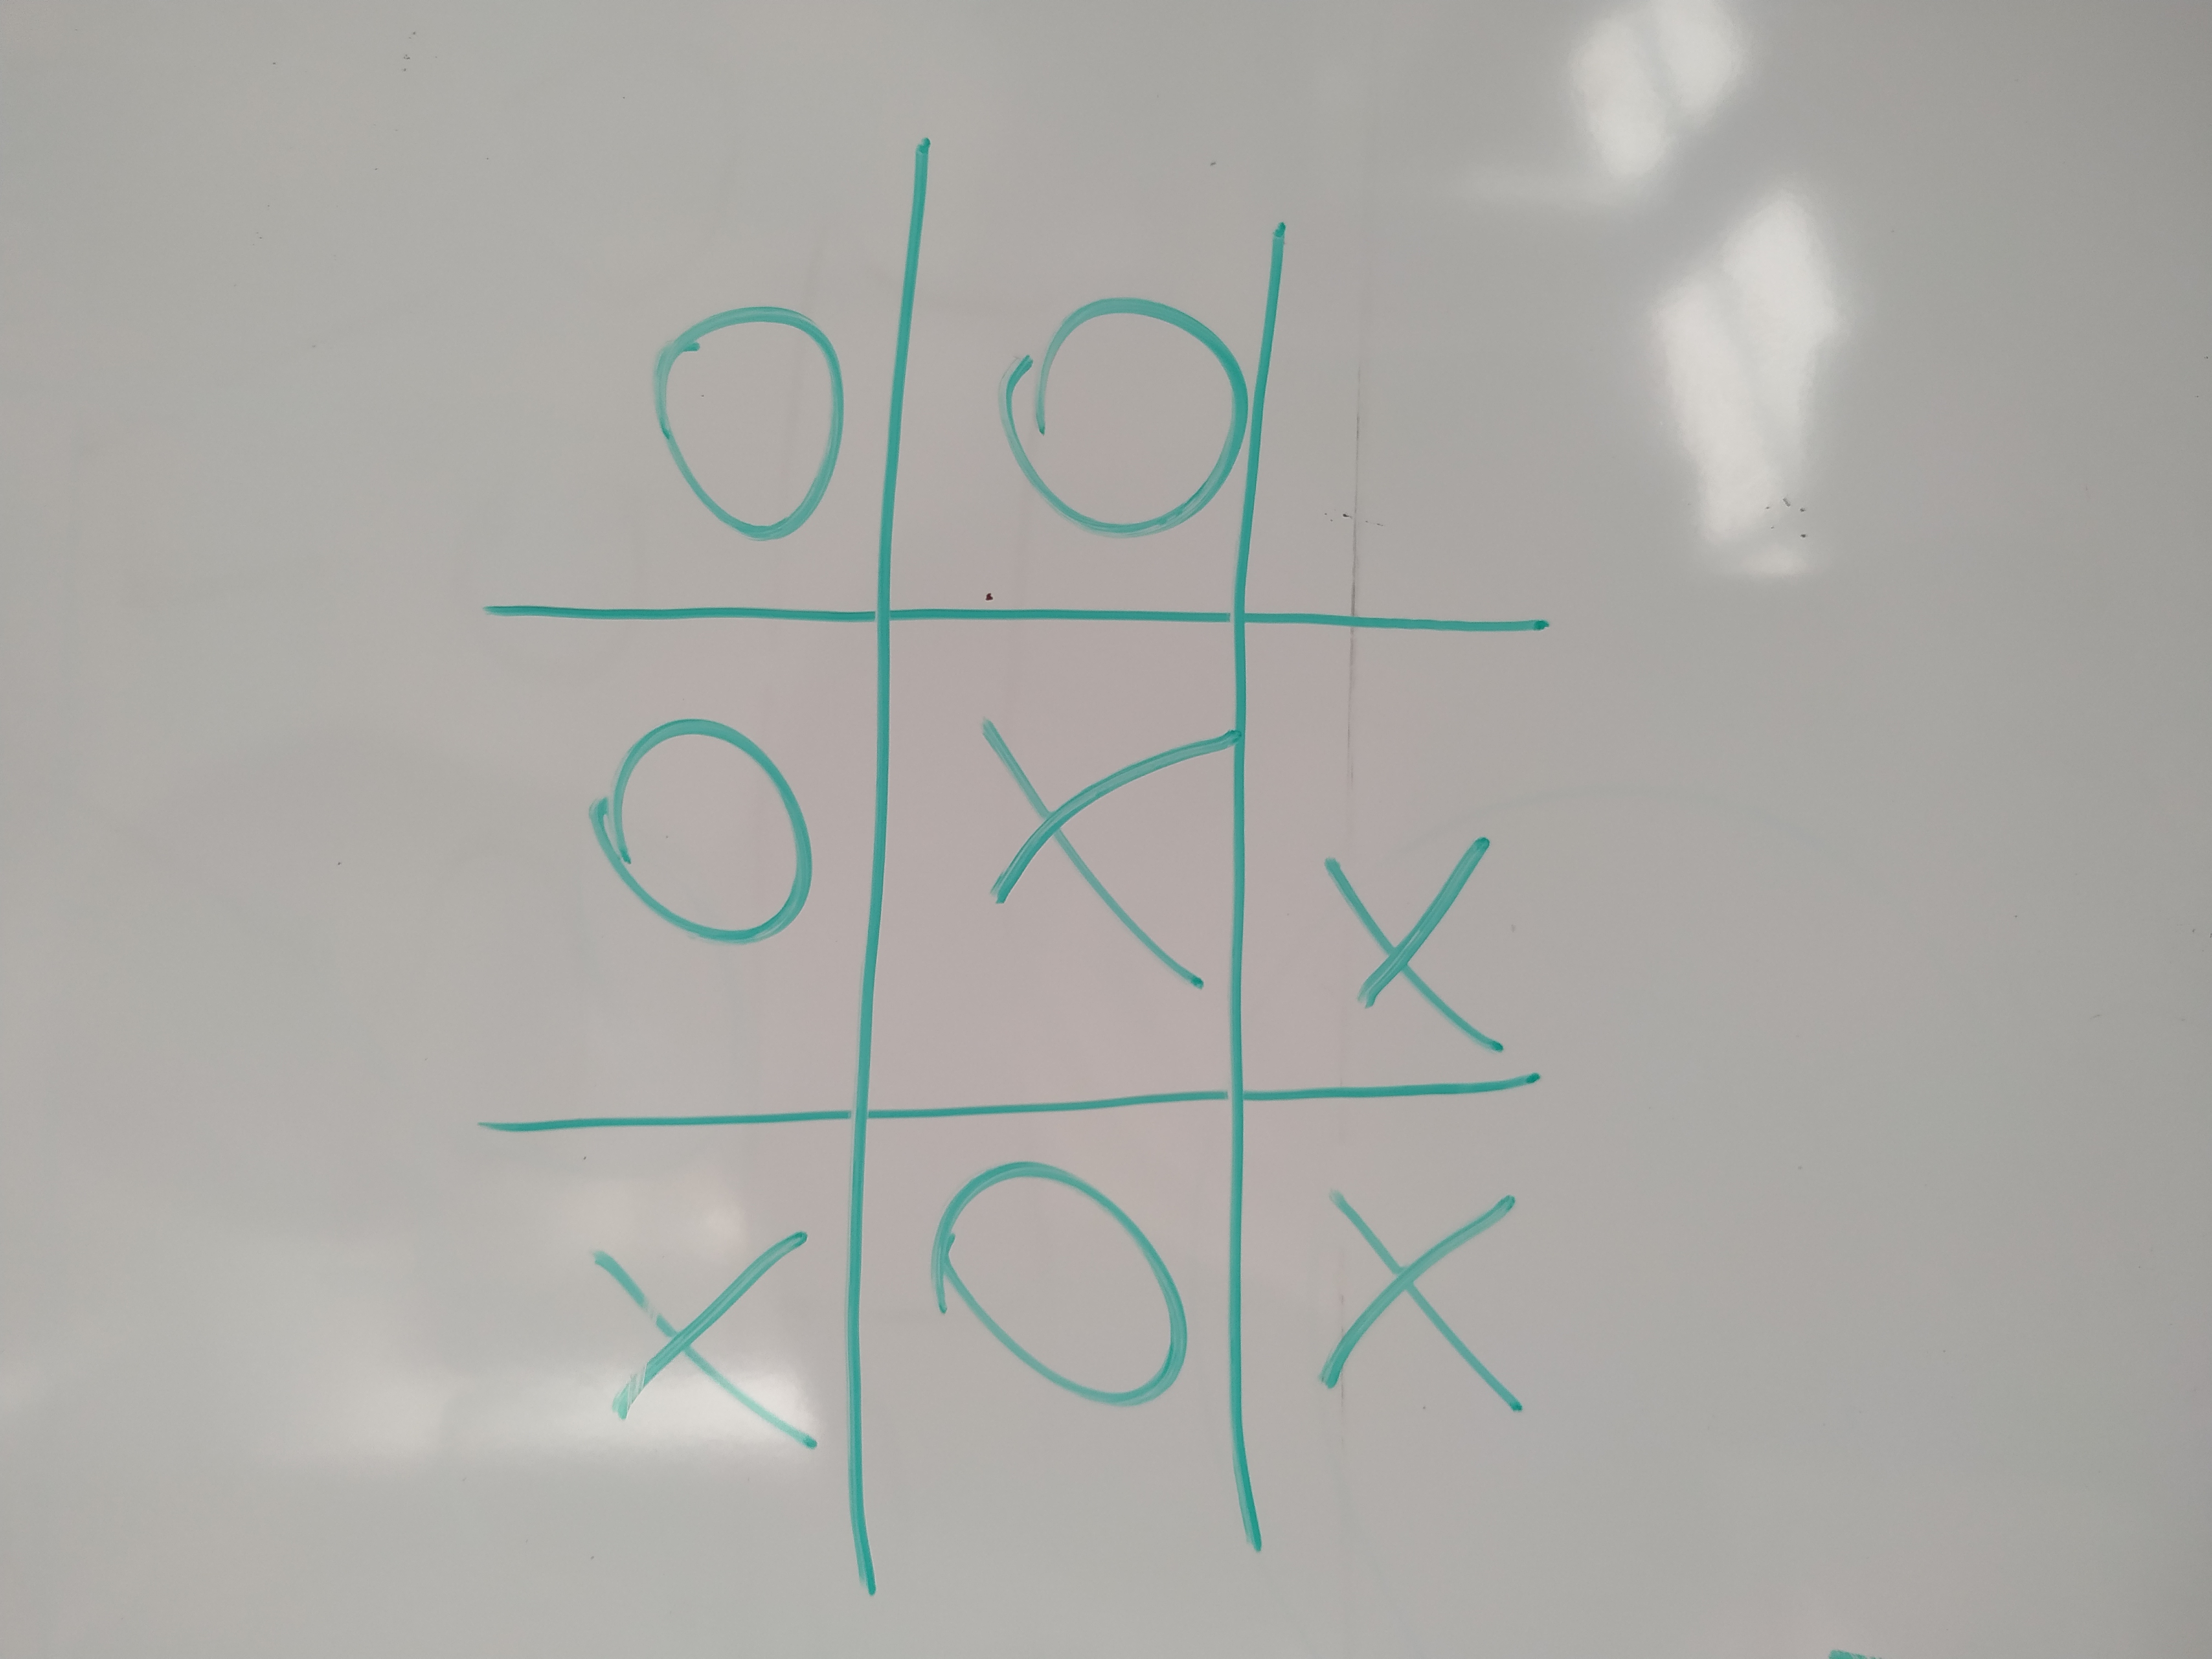 X O O
O X O
X X